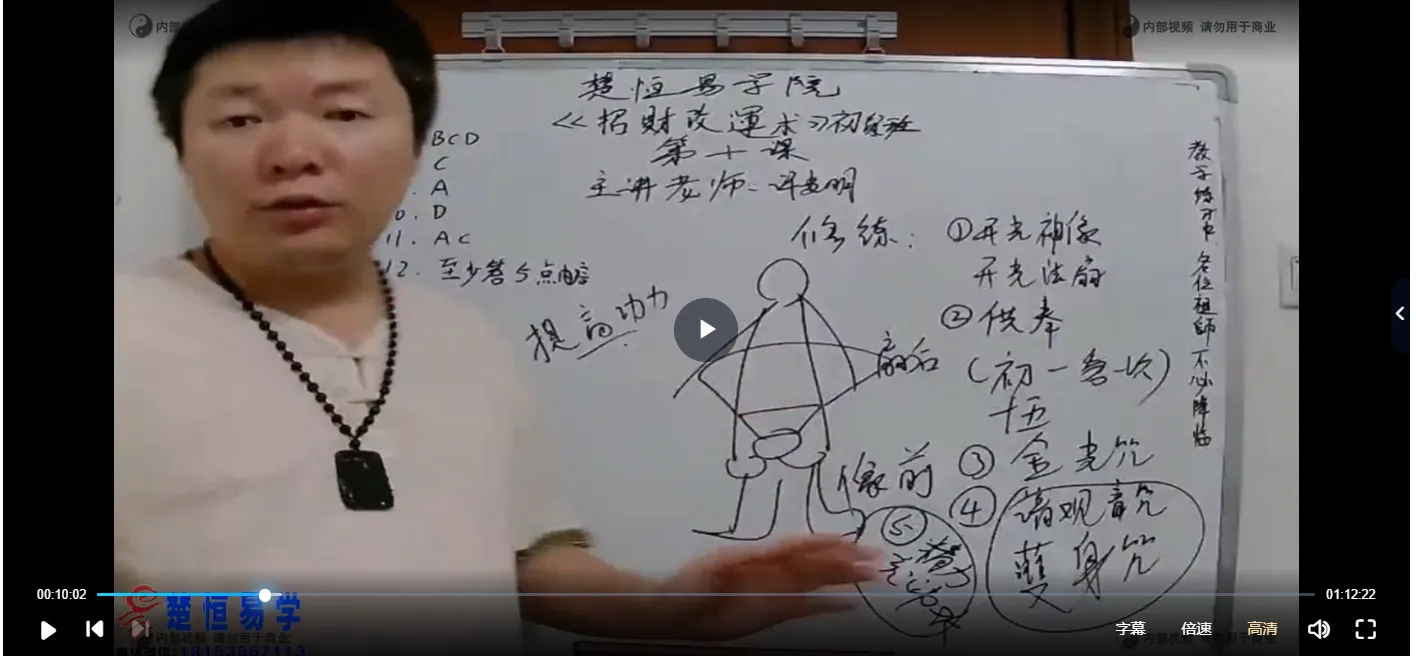 内部
内部视频 请勿用于商业
楚恒易学院
《招财改運术》初级班
第十课
主讲老师：许老明
BCD
C
A
0. D
11. AC
12. 至少答5点内容
提高功力
修练：①开光神像
开光法扇
②供奉
(初一各一次)
十五
扇后
像前
③ 金光咒
④ 请观音咒
護身咒
⑤
教学练习中 各位祖師不必降临
00:10:02
01:12:22
楚恒易学
内部视频 请勿用于商业
18153567113
字幕
倍速
高清